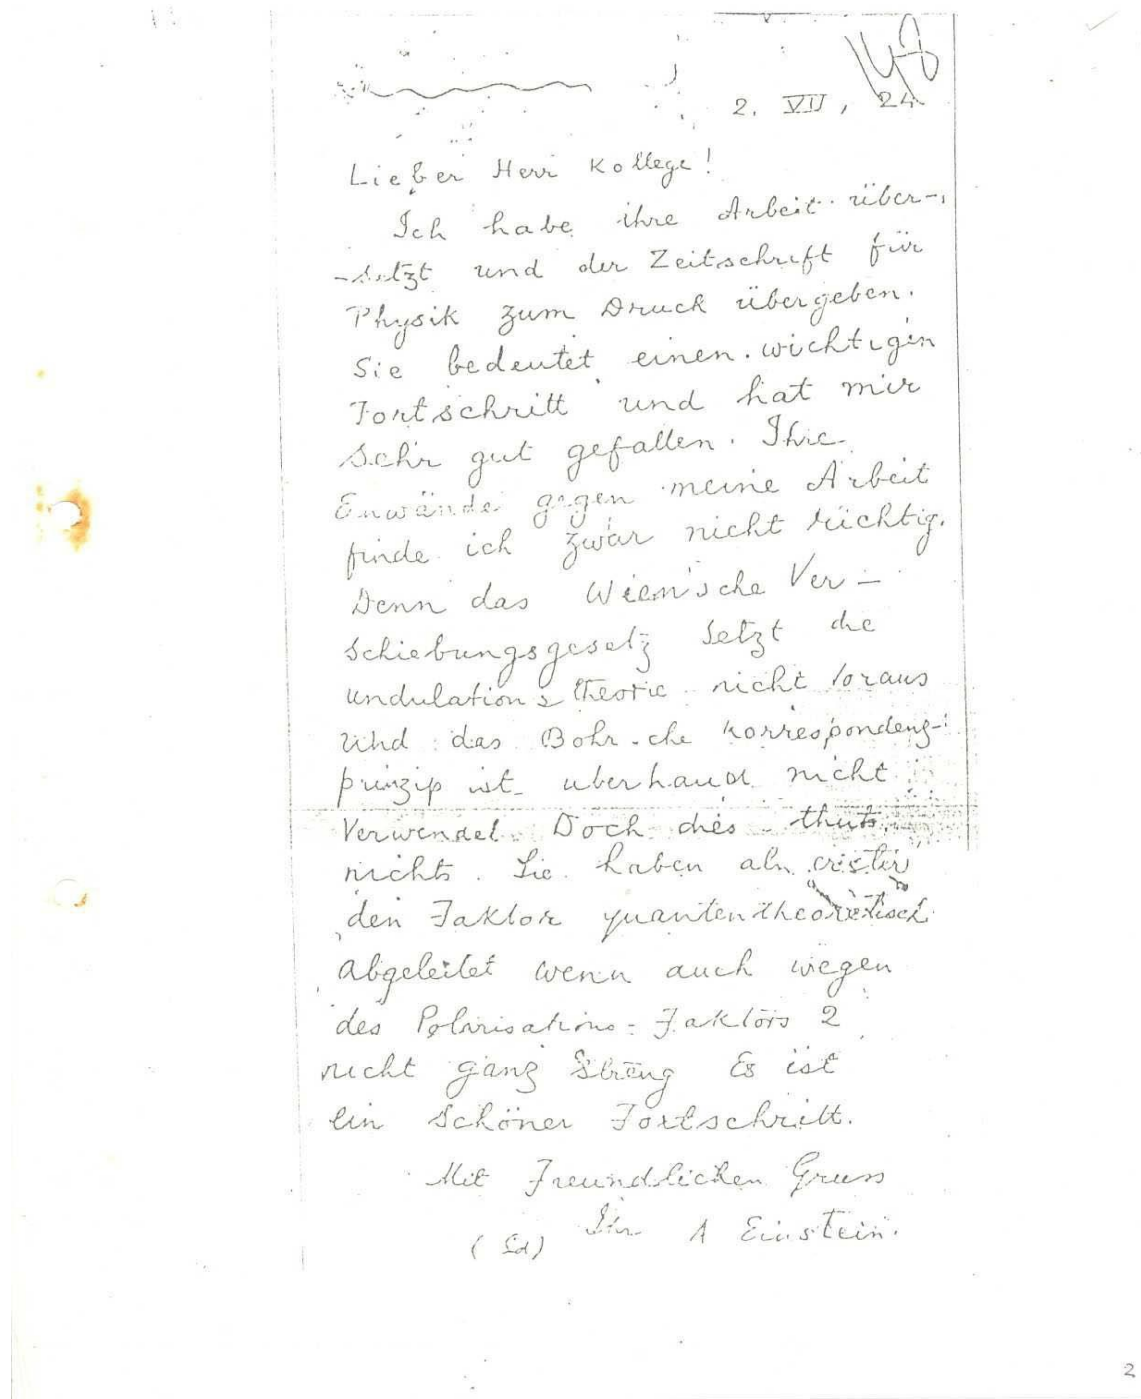 148
2. VII, 24
Lieber Herr Kollege!
Ich habe ihre Arbeit über-
-setzt und der Zeitschrift für
Physik zum Druck übergeben.
Sie bedeutet einen wichtigen
Fortschritt und hat mir
sehr gut gefallen. Ihre
Enwände gegen meine Arbeit
finde ich zwar nicht rüchtig.
Denn das Wien'sche Ver-
schiebungsgesetz setzt die
undulations theorie nicht voraus
und das Bohr-che Korrespondenz-
prinzip ist uberhaud nicht
Verwendet. Doch dies thut
nichts. Sie haben als erster
den Faktor quantentheoretisch
abgeleitet wenn auch wegen
des Polarisations-Faktors 2
nicht ganz Streng Es ist
ein schöner Fortschritt.
Mit Freundlichen Gruss
Ihr A Einstein.
(Sd)
2